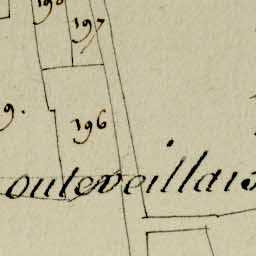 198
197
9.
196
outeveillais